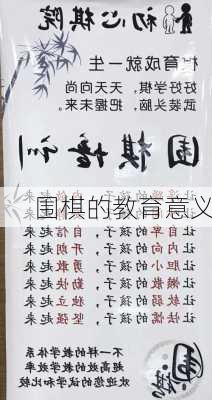 初心棋院
棋育成就一生
好好学棋 天天向尚
武装头脑,把握未来。
围棋培训
围棋的教育意义
让自卑的孩子,自信起来
让内向的孩子,开朗起来
让胆小的孩子,勇敢起来
让懒散的孩子,勤快起来
让软弱的孩子,独立起来
让怯懦的孩子,坚强起来
不一样的教学体系
更高效的教学效果
欢迎您的试学和比较
围棋